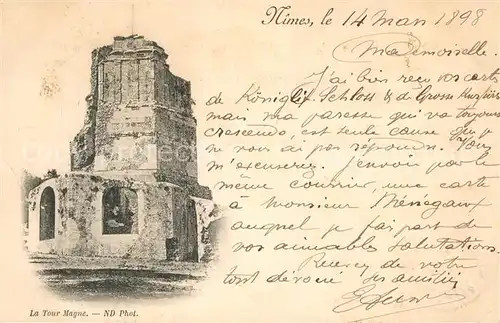 Nimes, le 14 Mars 1898
Mademoiselle.
J'ai bien reçu vos cartes
de Königlich. Schloss & de Grosse Kurfürst
mais ma paresse qui va toujours
crescendo, est seule cause que je
ne vous ai pas répondu. Vous
m'excuserez. J'envoie par le
même courrier, une carte
à Monsieur Ménégaux
auquel je fais part de
vos aimables salutations.
Recevez de votre
tout dévoué
La Tour Magne. — ND Phot.